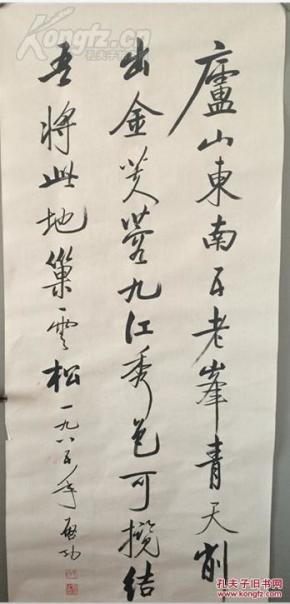 廬山東南五老峯青天削
出金芙蓉九江秀色可攬結
吾將此地巢雲松一九八五年 啟功
孔夫子旧书网
www.kongfz.cn
孔夫子旧书网